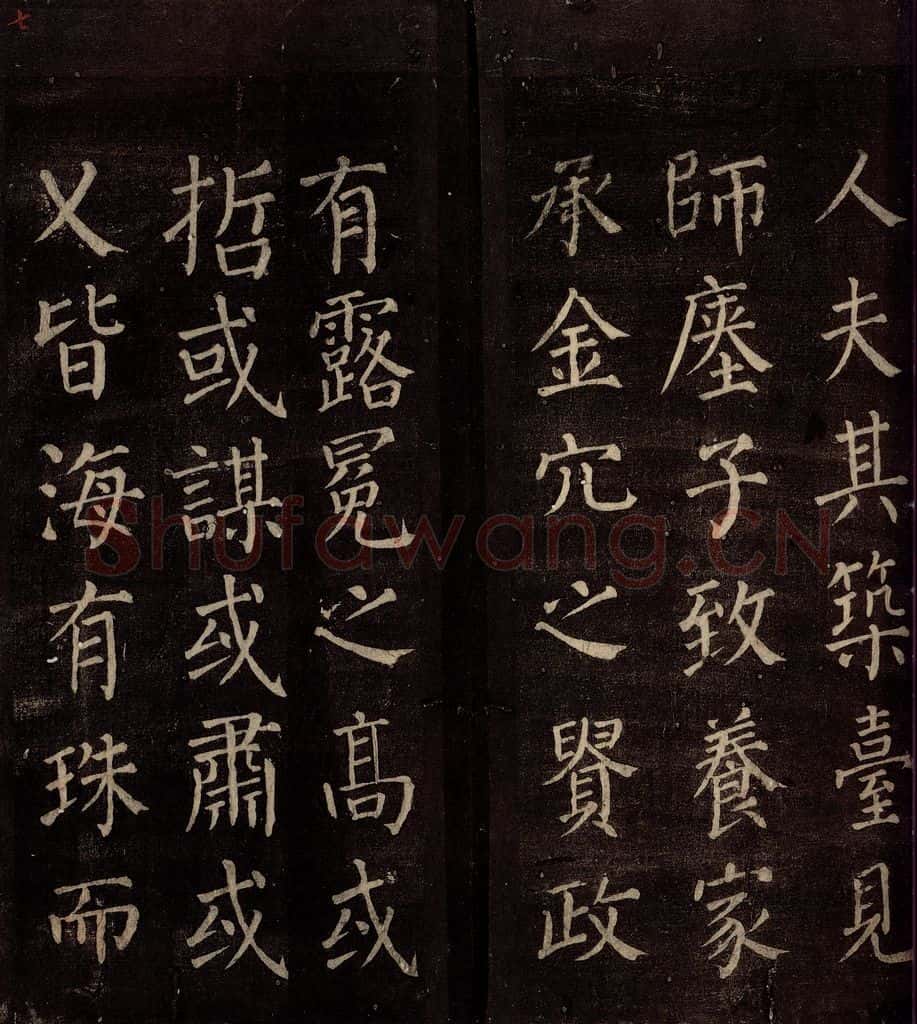 人夫其築臺見
師瘞子致養家
承金穴之貴政
有露冕之高或
哲或謀或肅或
乂皆海有珠而
七
Shufawang.CN